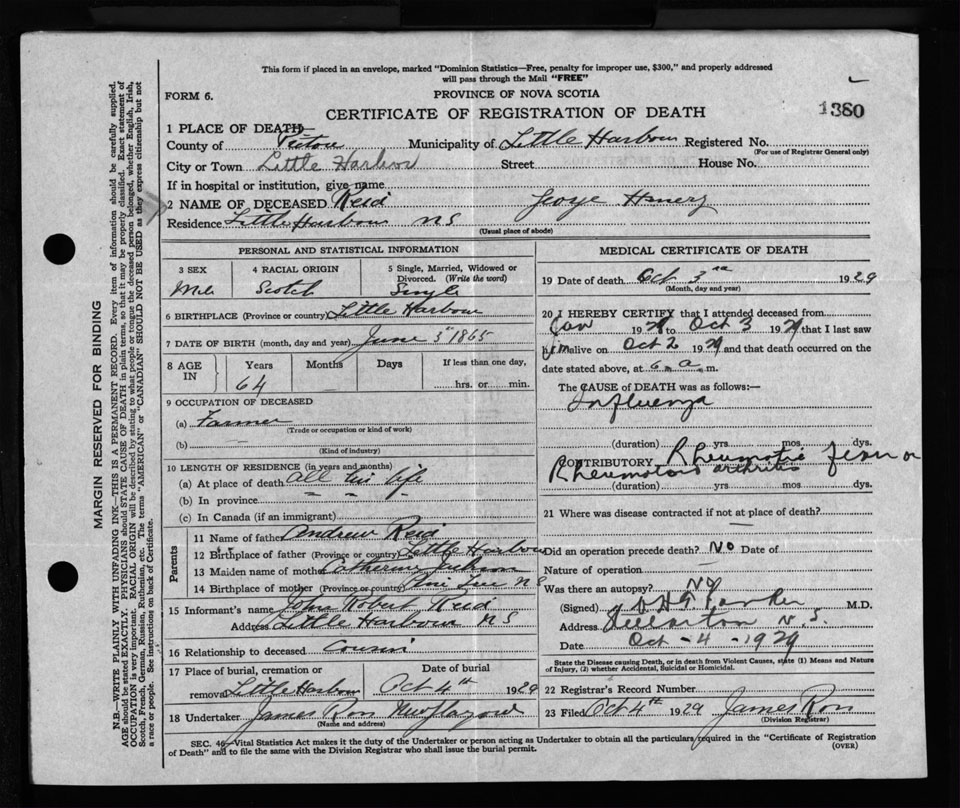 This form if placed in an envelope, marked "Dominion Statistics—Free, penalty for improper use, $300," and properly addressed
will pass through the Mail "FREE"
FORM 6.
PROVINCE OF NOVA SCOTIA
CERTIFICATE OF REGISTRATION OF DEATH
1380
1 PLACE OF DEATH—
County of Pictou Municipality of Little Harbour Registered No.
(For use of Registrar General only)
City or Town Little Harbor Street House No.
If in hospital or institution, give name
2 NAME OF DECEASED Reid George Henery
Residence Little Harbour NS
(Usual place of abode)
PERSONAL AND STATISTICAL INFORMATION
3 SEX 4 RACIAL ORIGIN 5 Single, Married, Widowed or
Divorced. (Write the word)
Male Scotch Single
6 BIRTHPLACE (Province or country) Little Harbour
7 DATE OF BIRTH (month, day and year) June 3 1865
8 AGE IN Years Months Days If less than one day,
64 hrs. or min.
9 OCCUPATION OF DECEASED
(a) Farmer
(Trade or occupation or kind of work)
(b) —
(Kind of industry)
10 LENGTH OF RESIDENCE (in years and months)
(a) At place of death all his life
(b) In province " " "
(c) In Canada (if an immigrant)
Parents
11 Name of father Andrew Reid
12 Birthplace of father (Province or country) Little Harbour
13 Maiden name of mother Catherine
14 Birthplace of mother (Province or country) NS
15 Informant's name John Robert Reid
Address Little Harbour NS
16 Relationship to deceased Cousin
17 Place of burial, cremation or Date of burial
removal Little Harbour Oct 4th 1929
18 Undertaker James Ross New Glasgow
(Name and address)
MEDICAL CERTIFICATE OF DEATH
19 Date of death Oct 3rd 1929
(Month, day and year)
20 I HEREBY CERTIFY that I attended deceased from
Jan 1929 to Oct 3 1929 that I last saw
him alive on Oct 2 1929 and that death occurred on the
date stated above, at 6 a m.
The CAUSE of DEATH was as follows:—
Influenza
(duration) yrs mos dys.
CONTRIBUTORY Rheumatic fever or
Rheumatoid arthritis
(duration) yrs. mos. dys.
21 Where was disease contracted if not at place of death?
—
Did an operation precede death? No Date of
Nature of operation
Was there an autopsy? No
(Signed) M.D.
Address Stellarton N.S.
Date Oct - 4 - 1929
State the Disease causing Death, or in death from Violent Causes, state (1) Means and Nature
of Injury, (2) whether Accidental, Suicidal or Homicidal.
22 Registrar's Record Number
23 Filed Oct 4th 1929 James Ross
(Division Registrar)
SEC. 46—Vital Statistics Act makes it the duty of the Undertaker or person acting as Undertaker to obtain all the particulars required in the "Certificate of Registration
of Death" and to file the same with the Division Registrar who shall issue the burial permit.
(OVER)
MARGIN RESERVED FOR BINDING
N.B.—WRITE PLAINLY WITH UNFADING INK—THIS IS A PERMANENT RECORD. Every item of information should be carefully supplied.
AGE should be stated EXACTLY. PHYSICIANS should STATE CAUSE OF DEATH in plain terms, so that it may be properly classified. Exact statement of
OCCUPATION is very important. RACIAL ORIGIN will be described by stating to what people or tongue the deceased person belonged, whether English, Irish,
Scotch, French, German, Russian, Ruthenian, etc. The terms "AMERICAN" or "CANADIAN" SHOULD NOT BE USED as they express citizenship but not
a race or people. See instructions on back of Certificate.